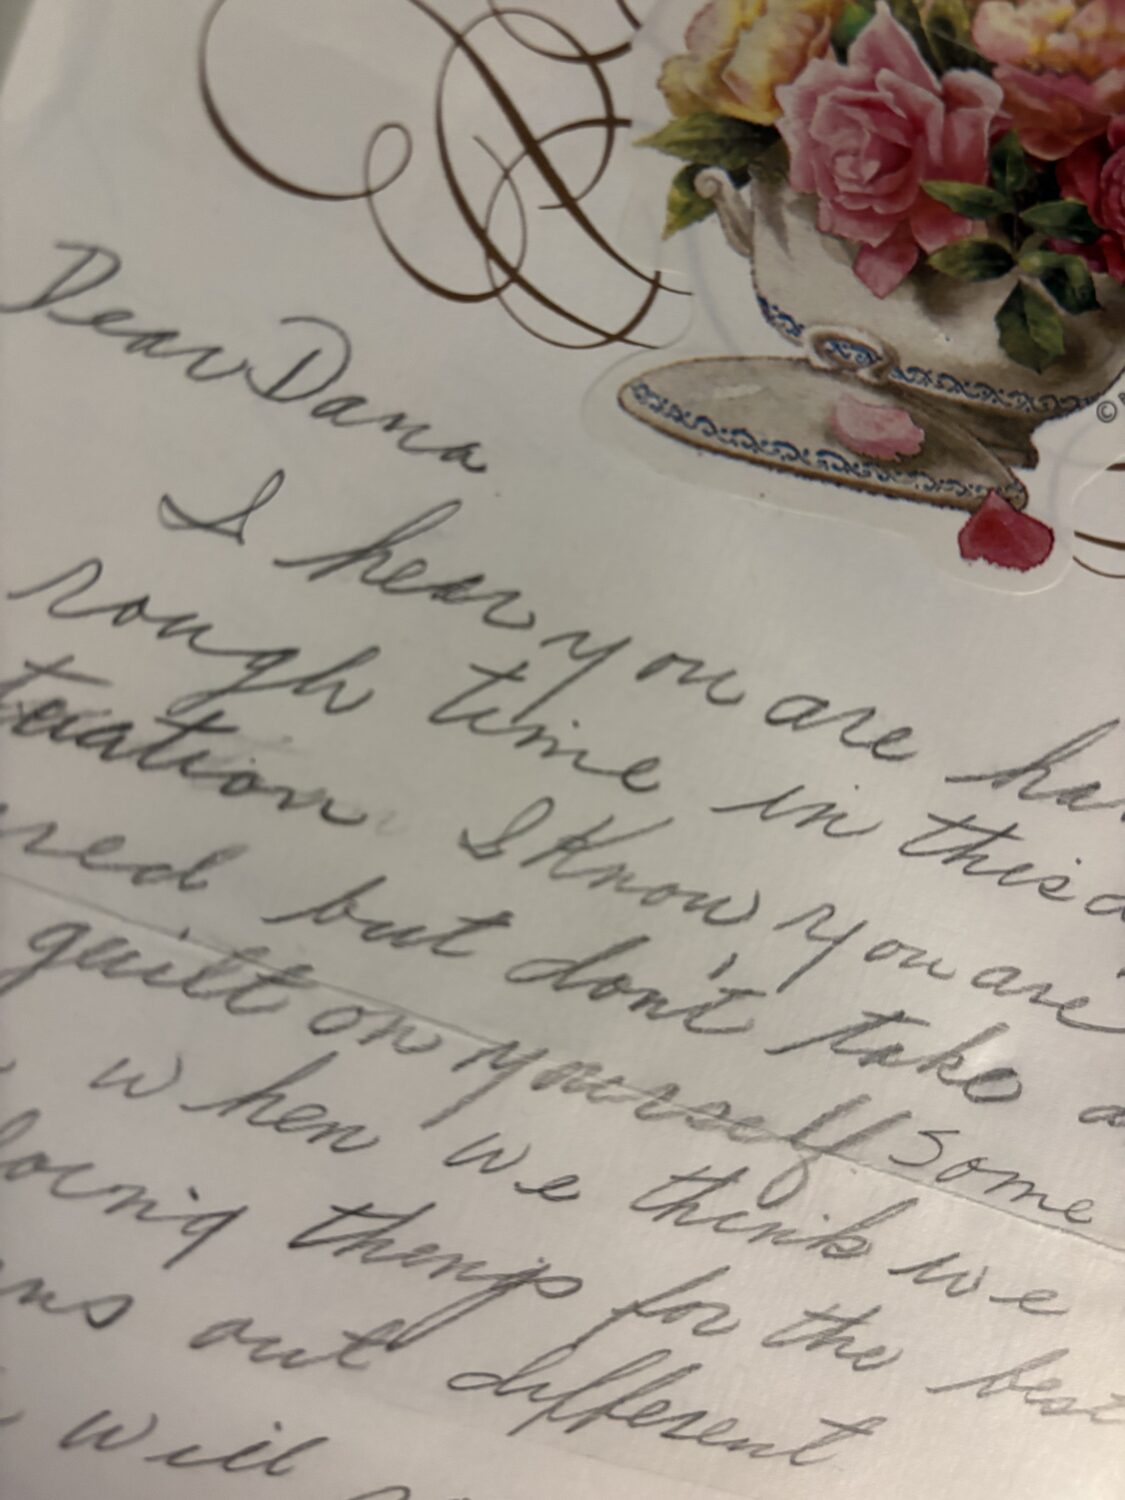 ©
Dear Dana
I hear you are ha
rough time in this
tuation I Know you are
red but don't take a
guilt on yourself some
when we think we
doing things for the best
ns out different
will